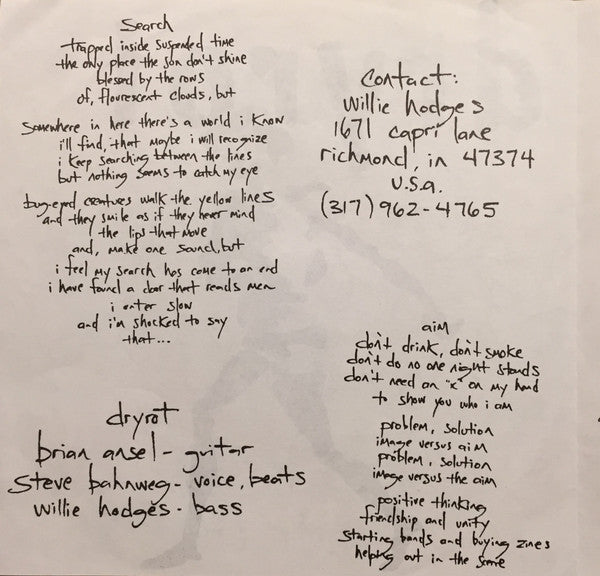 Search
trapped inside suspended time
the only place the son don't shine
blessed by the rows
of, flourescent clouds, but
somewhere in here there's a world i know
i'll find, that maybe i will recognize
i keep searching between the lines
but nothing seems to catch my eye
bug-eyed creatures walk the yellow lines
and they smile as if they never mind
the lips that move
and, make one sound, but
i feel my search has come to an end
i have found a door that reads men
i enter slow
and i'm shocked to say
that...
Contact:
willie hodges
1671 capri lane
richmond, in 47374
u.s.a.
(317) 962-4765
dryrot
brian ansel - guitar
Steve bahnweg - voice, beats
willie hodges - bass
aim
don't drink, don't smoke
don't do no one night stands
don't need an "x" on my hand
to show you who i am
problem, solution
image versus aim
problem, solution
image versus the aim
positive thinking
friendship and unity
starting bands and buying zines
helping out in the scene